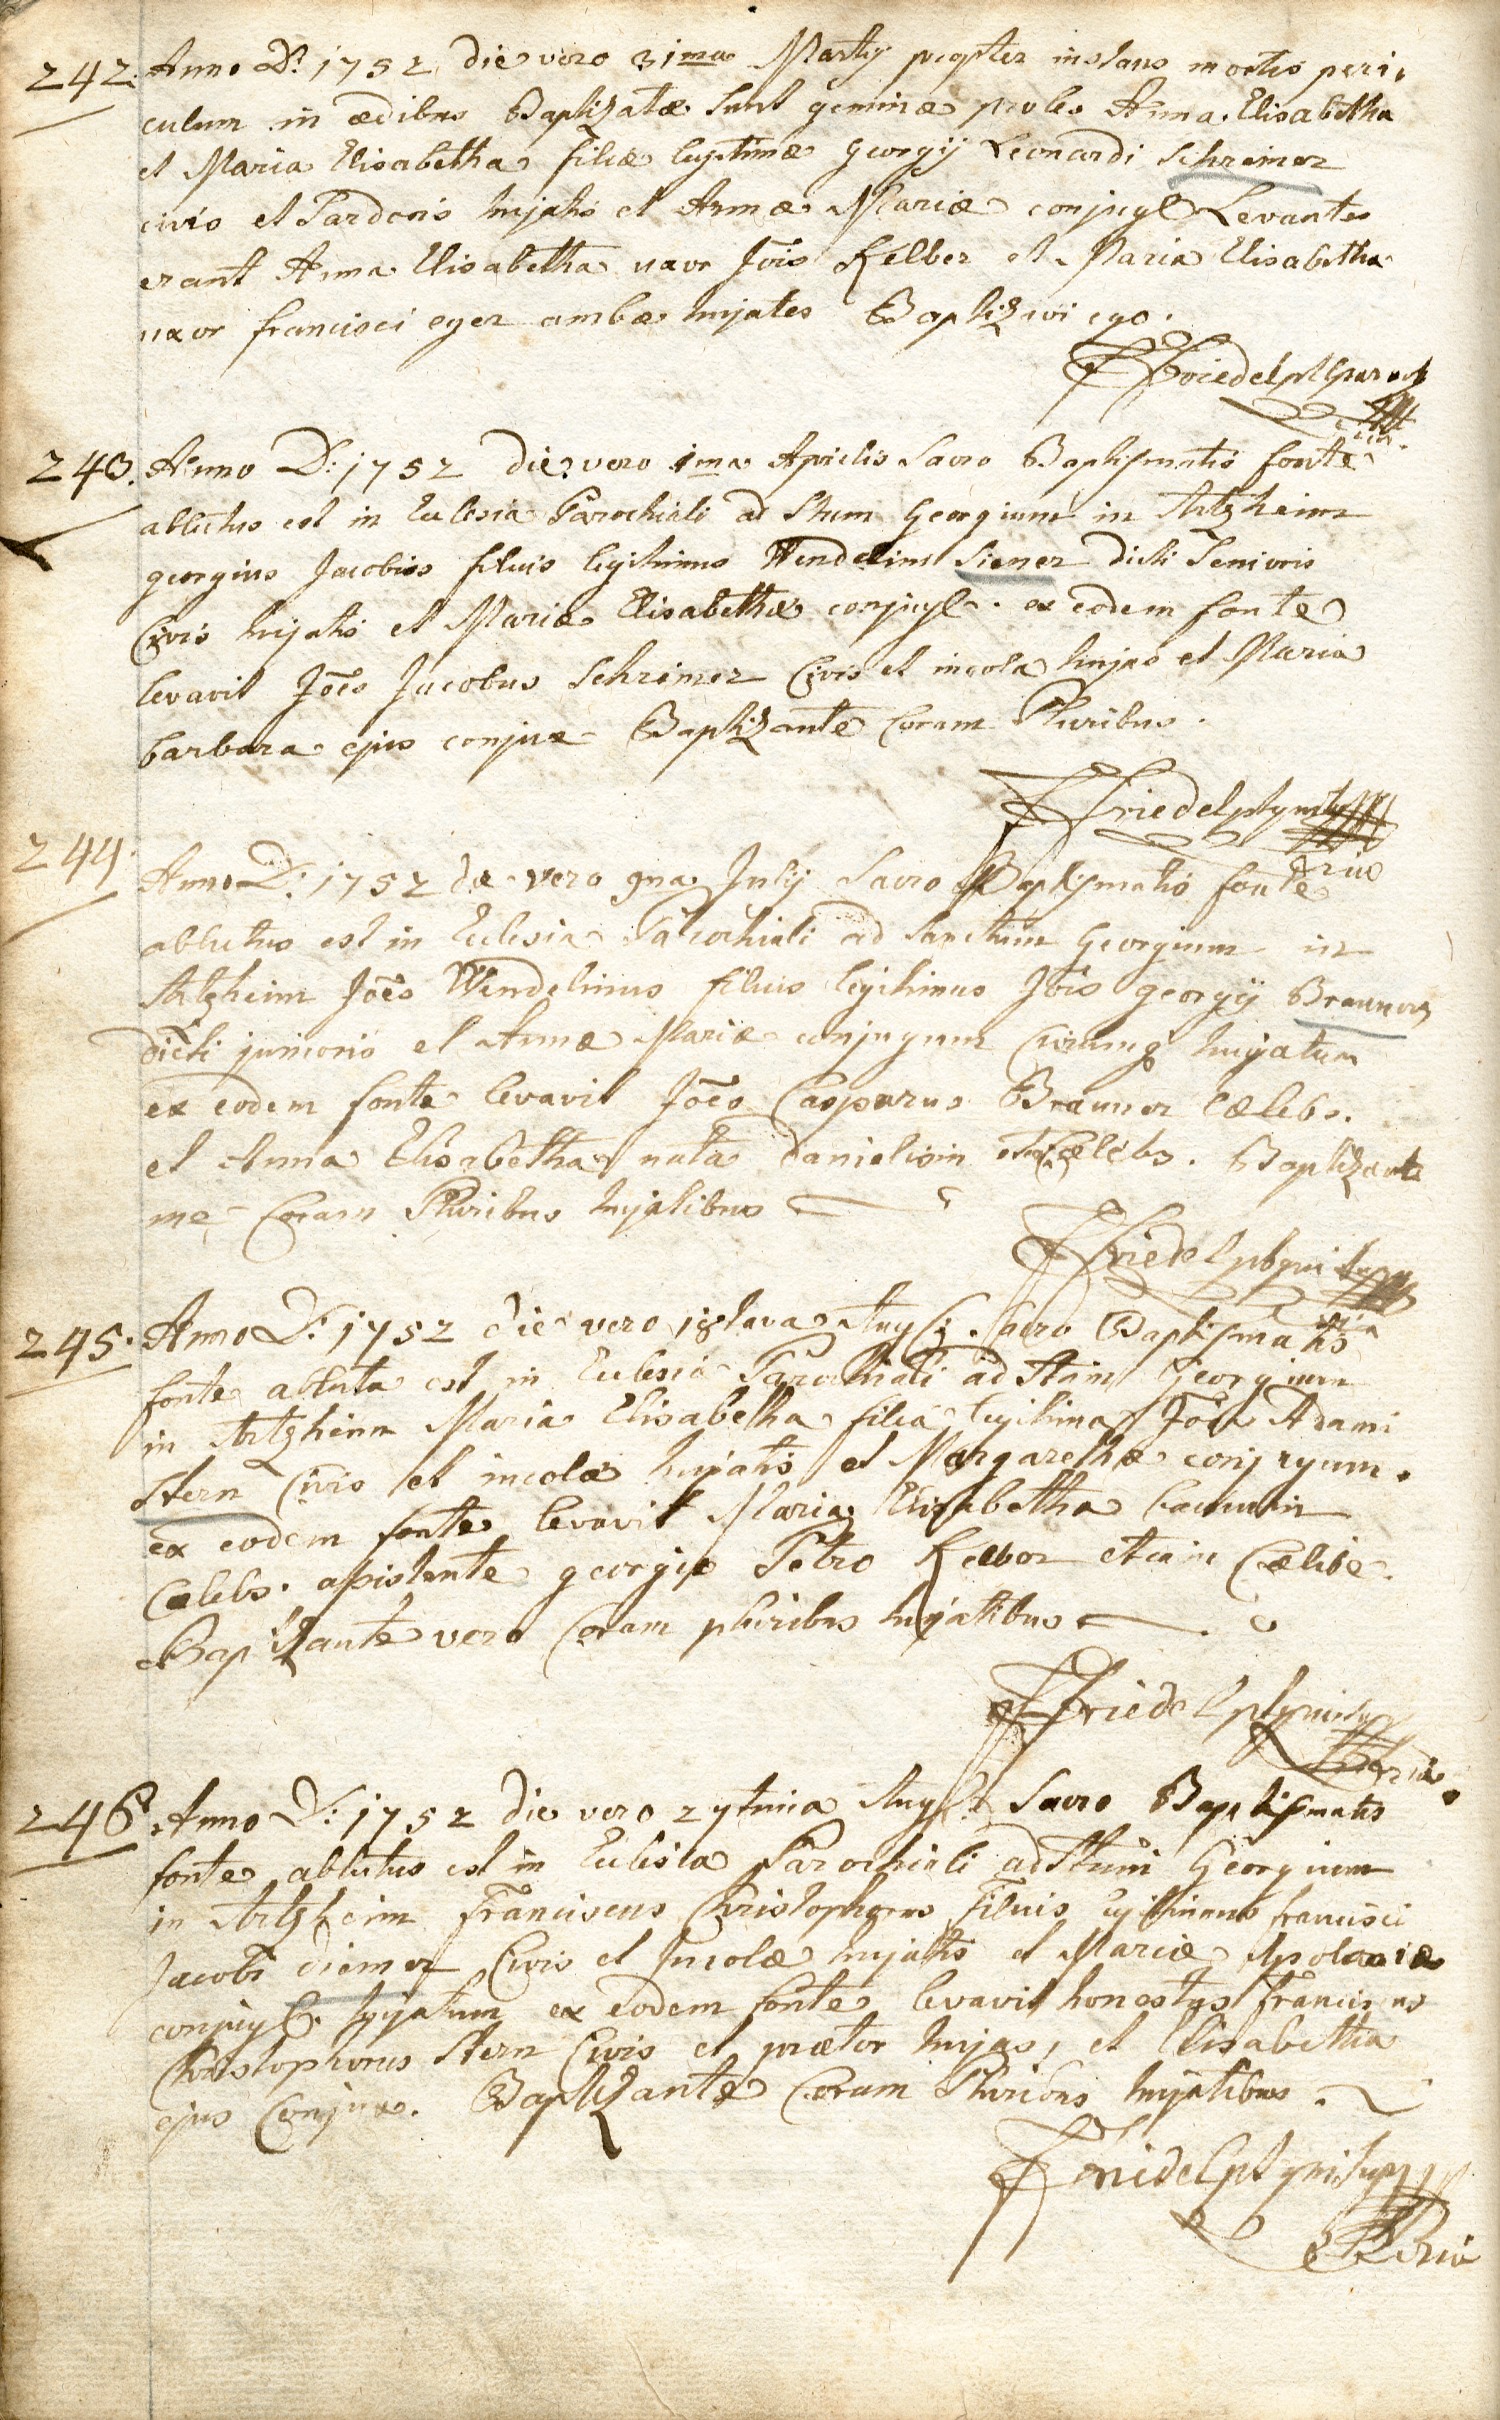 242. Anno D: 1752 die vero 31ma Martij propter instans mortis peri,
culum in ædibus Baptizatæ sunt geminæ proles Anna Elisabetha
et Maria Elisabetha filiæ legitimæ georgij Leonardi Schreiner
civis et Sardoris hujatis et Annæ Mariæ conjug Levantes
erant Anna Elisabetha uxor Jõis Kelber et Maria Elisabetha
uxor francisci eger ambæ hujates Baptizavi ego.
Friedel
243. Anno D: 1752 die vero 1ma Aprilis Sacro Baptismatis fonte
ablutus est in Eclesia Parochiali ad Stum Georgium in Artzheim
georgius Jacobus filius legitimus Wendelini Siener dicti Senioris
Civis hujatis et Mariæ Elisabethæ conjug. ex eodem fonte
levavit Jões Jacobus Schreiner Civis et incola hujas et Maria
barbara ejus conjux Baptizante Coram Pluribus.
Friedel
244. Anno D: 1752 die vero 9na Julij Sacro Baptismatis fonte
ablutus est in Eclesia Parochiali ad Sanctum Georgium in
Artzheim Jões Wendelinus filius legitimus Jõis georgij Brauner
dicti junioris et Annæ Mariæ conjugum Civiumq hujatum
ex eodem fonte levavit Jões Casparus Brauner Cælebs.
et Anna Elisabetha nata danielisin Cælebs. Baptizante
me Coram Pluribus hujatibus
Friedel
245. Anno D: 1752 die vero 18tava Aug Sacro Baptismatis
fonte abluta est in Eclesia Parochiali ad Stum Georgium
in Artzheim Maria Elisabetha filia legitima Jõis Adami
Stern Civis et incolæ hujatis et Margarethæ conjugum.
ex eodem fonte levavit Maria Elisabetha
Cælebs. assistente georgio Petro Kelber etiam Cælibe.
Baptizante vero Coram pluribus hujatibus
Friedel
246 Anno D: 1752 die vero 27tima Aug Sacro Baptismatis
fonte ablutus est in Eclesia Parochiali ad Stum Georgium
in Artzheim Franciscus Christophorus filius legitimus francisci
Jacobi diemer Civis et Incolæ hujatis et Mariæ Apoloniæ
conjug. hujatum ex eodem fonte levavit honestus Franciscus
Christophorus Stern Civis et prætor hujas, et Elisabetha
ejus Conjux. Baptizante Coram Pluribus hujatibus.
Friedel